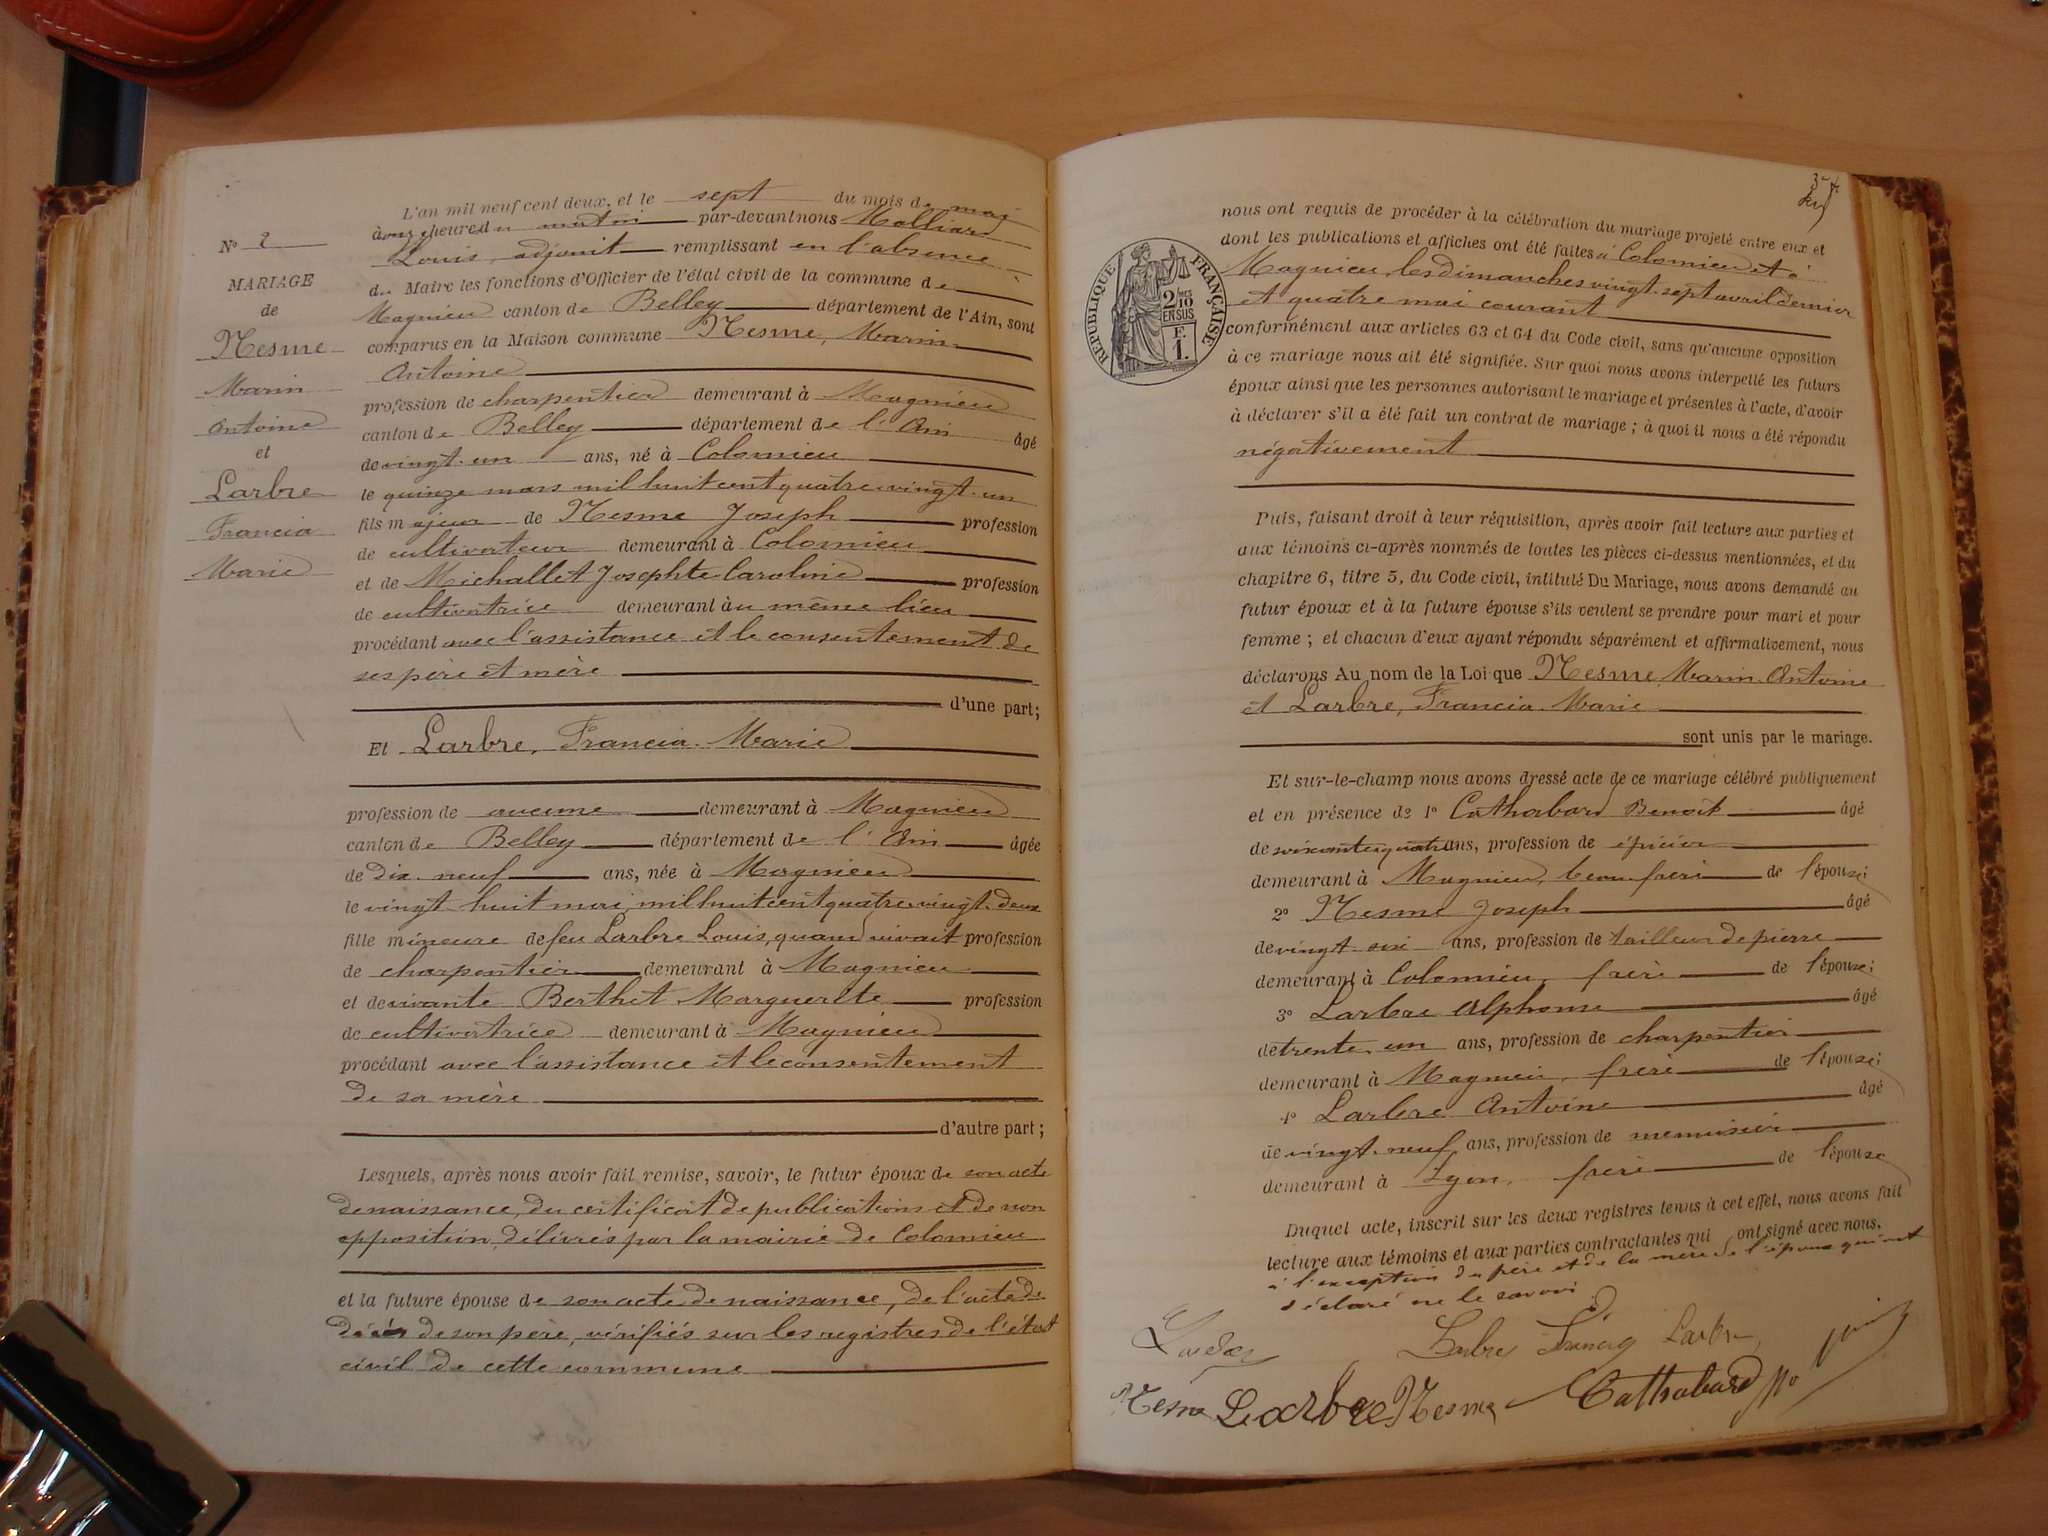 L'an mil neuf cent deux, et le sept du mois de mai
à onze heures du matin par-devant nous Molliard
Louis, adjoint remplissant en l'absence
du Maire les fonctions d'Officier de l'état civil de la commune de
Magnieu canton de Belley département de l'Ain, sont
comparus en la Maison commune Nesme, Marin
Antoine
profession de charpentier demeurant à Magnieu
canton de Belley département de l'Ain âgé
de vingt-un ans, né à Colomieu
le quinze mars mil huit cent quatre-vingt-un
fils majeur de Nesme Joseph profession
de cultivateur demeurant à Colomieu
et de Michallet Josephte Caroline profession
de cultivatrice demeurant au même lieu
procédant avec l'assistance et le consentement de
ses père et mère
d'une part;
Et Larbre, Francia Marie
profession de aucune demeurant à Magnieu
canton de Belley département de l'Ain âgée
de dix-neuf ans, née à Magnieu
le vingt-huit mai mil huit cent quatre-vingt-deux
fille mineure de feu Larbre Louis, quand vivait profession
de charpentier demeurant à Magnieu
et de vivante Berthet Marguerite profession
de cultivatrice demeurant à Magnieu
procédant avec l'assistance et le consentement
de sa mère
d'autre part;
Lesquels, après nous avoir fait remise, savoir, le futur époux de son acte
de naissance, du certificat de publications et de non
opposition, délivrés par la mairie de Colomieu
et la future épouse de son acte de naissance, de l'acte de
décès de son père, vérifiés sur les registres de l'état
civil de cette commune
N° 2
MARIAGE
de
Nesme
Marin
Antoine
et
Larbre
Francia
Marie
nous ont requis de procéder à la célébration du mariage projeté entre eux et
dont les publications et affiches ont été faites à Colomieu et à
Magnieu, les dimanches vingt-sept avril dernier
et quatre mai courant
conformément aux articles 63 et 64 du Code civil, sans qu'aucune opposition
à ce mariage nous ait été signifiée. Sur quoi nous avons interpellé les futurs
époux ainsi que les personnes autorisant le mariage et présentes à l'acte, d'avoir
à déclarer s'il a été fait un contrat de mariage; à quoi il nous a été répondu
négativement
RÉPUBLIQUE FRANÇAISE
2/10mes
EN SUS
F.
1.
Puis, faisant droit à leur réquisition, après avoir fait lecture aux parties et
aux témoins ci-après nommés de toutes les pièces ci-dessus mentionnées, et du
chapitre 6, titre 5, du Code civil, intitulé Du Mariage, nous avons demandé au
futur époux et à la future épouse s'ils veulent se prendre pour mari et pour
femme; et chacun d'eux ayant répondu séparément et affirmativement, nous
déclarons Au nom de la Loi que Nesme, Marin Antoine
et Larbre, Francia Marie
sont unis par le mariage.
Et sur-le-champ nous avons dressé acte de ce mariage célébré publiquement
et en présence de 1° Cathabard Benoit âgé
de soixante quatre ans, profession de épicier
demeurant à Magnieu, beau-frère de l'épouse;
2° Nesme Joseph âgé
de vingt-six ans, profession de tailleur de pierre
demeurant à Colomieu, frère de l'épouse;
3° Larbre Alphonse âgé
de trente-un ans, profession de charpentier
demeurant à Magnieu, frère de l'épouse;
4° Larbre Antoine âgé
de vingt-neuf ans, profession de menuisier
demeurant à Lyon, frère de l'épouse
Duquel acte, inscrit sur les deux registres tenus à cet effet, nous avons fait
lecture aux témoins et aux parties contractantes qui ont signé avec nous.
à l'exception du père et de la mère de l'époux qui ont
déclaré ne le savoir.
Larbre Francia Larbre
Nesme Larbre Nesme Cathabard